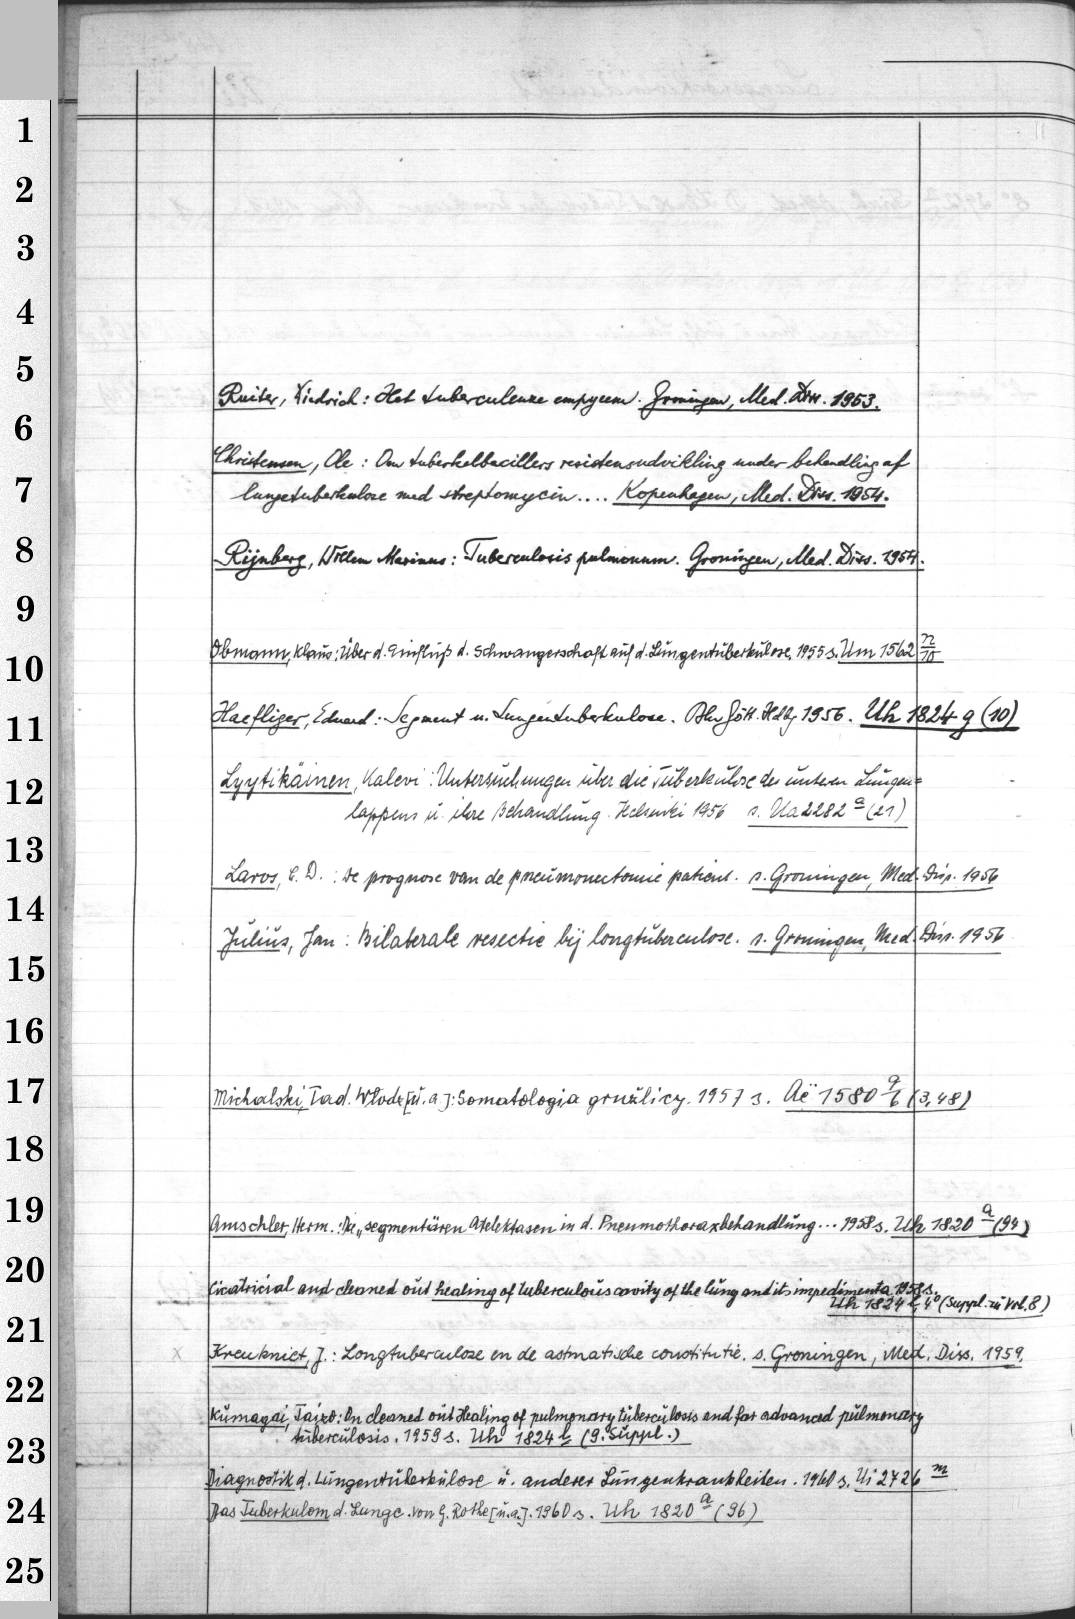 1
2
3
4
5
Ruiter, Diedrich: Het tuberculeuze empyeem. Groningen, Med. Diss. 1953.
6
Christensen, Ole: Om tuberkelbacillers resistensudvikling under behandling af
7
lungetuberkulose med streptomycin.... Kopenhagen, Med. Diss. 1954.
8
Rijnberg, Willem Marinus: Tuberculosis pulmonum. Groningen, Med. Diss. 1954.
9
Obmann, Klaus: Über d. Einfluß d. Schwangerschaft auf d. Lungentuberkulose. 1955 s. Um 1562 n/10
10
Haefliger, Eduard: Segment u. Lungentuberkulose. Gött. Hdbg 1956. Uh 1824 g (10)
11
Lyytikäinen, Kalevi: Untersuchungen über die Tuberkulose des unteren Lungen=
12
lappens u. ihre Behandlung. Helsinki 1956 s. Ua 2282 a (21)
13
Laros, C. D.: De prognose van de pneumonectomie patient. s. Groningen, Med. Diss. 1956
14
Julius, Jan: Bilaterale resectie bij longtuberculose. s. Groningen, Med. Diss. 1956
15
16
17
Michalski, Tad. Włodz [u. a.]: Somatologia gruźlicy. 1957 s. Aë 1580 a/6 (3,48)
18
19
Amschler, Herm.: Die „segmentären Atelektasen in d. Pneumothoraxbehandlung... 1958 s. Uh 1820 a (94)
20
Cicatricial and cleaned out healing of tuberculous cavity of the lung and its impedimenta 1958 s.
Uh 1824 l, 4° (Suppl. zu Vol. 8)
21
x Kreukniet, J.: Longtuberculose en de astmatische constitutie. s. Groningen, Med. Diss. 1959.
22
Kumagai, Taizo: On cleaned out Healing of pulmonary tuberculosis and far advanced pulmonary
23
tuberculosis. 1959 s. Uh 1824 l (9. Suppl.)
Diagnostik d. Lungentuberkulose u. anderer Lungenkrankheiten. 1960 s. Ui 2726 m
24
Das Tuberkulom d. Lunge. von G. Rothe [u.a.]. 1960 s. Uh 1820 a (96)
25